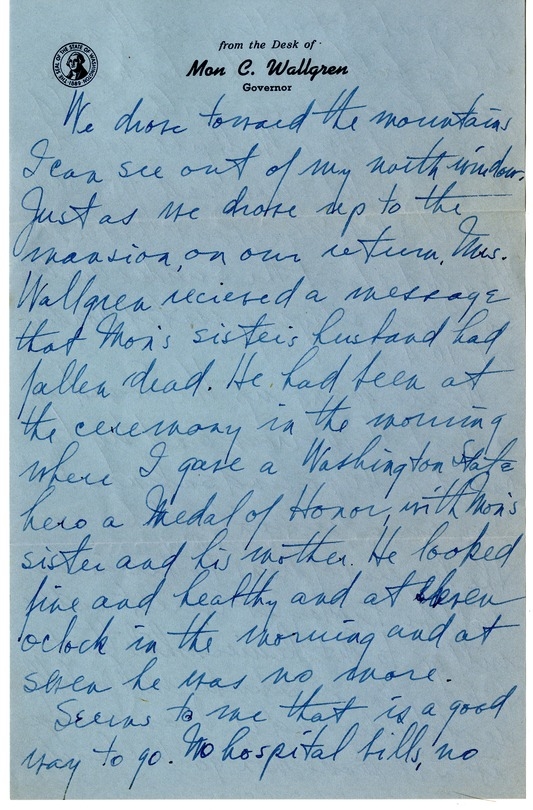 THE SEAL OF THE STATE OF WASHINGTON 1889
from the Desk of
Mon C. Wallgren
Governor
We drove toward the mountains
I can see out of my north window.
Just as we drove up to the
mansion, on our return, Mrs.
Wallgren recieved a message
that Mon's sister's husband had
fallen dead. He had been at
the ceremony in the morning
where I gave a Washington State
hero a Medal of Honor, with Mon's
sister and his mother. He looked
fine and healthy and at eleven
oclock in the morning and at
seven he was no more.
Seems to me that is a good
way to go. No hospital bills, no